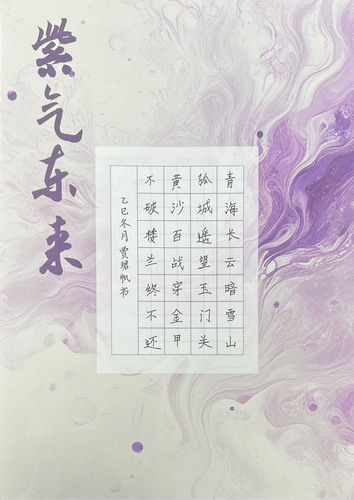 紫气东来
青海长云暗雪山
孤城遥望玉门关
黄沙百战穿金甲
不破楼兰终不还
乙巳冬月贾帆书